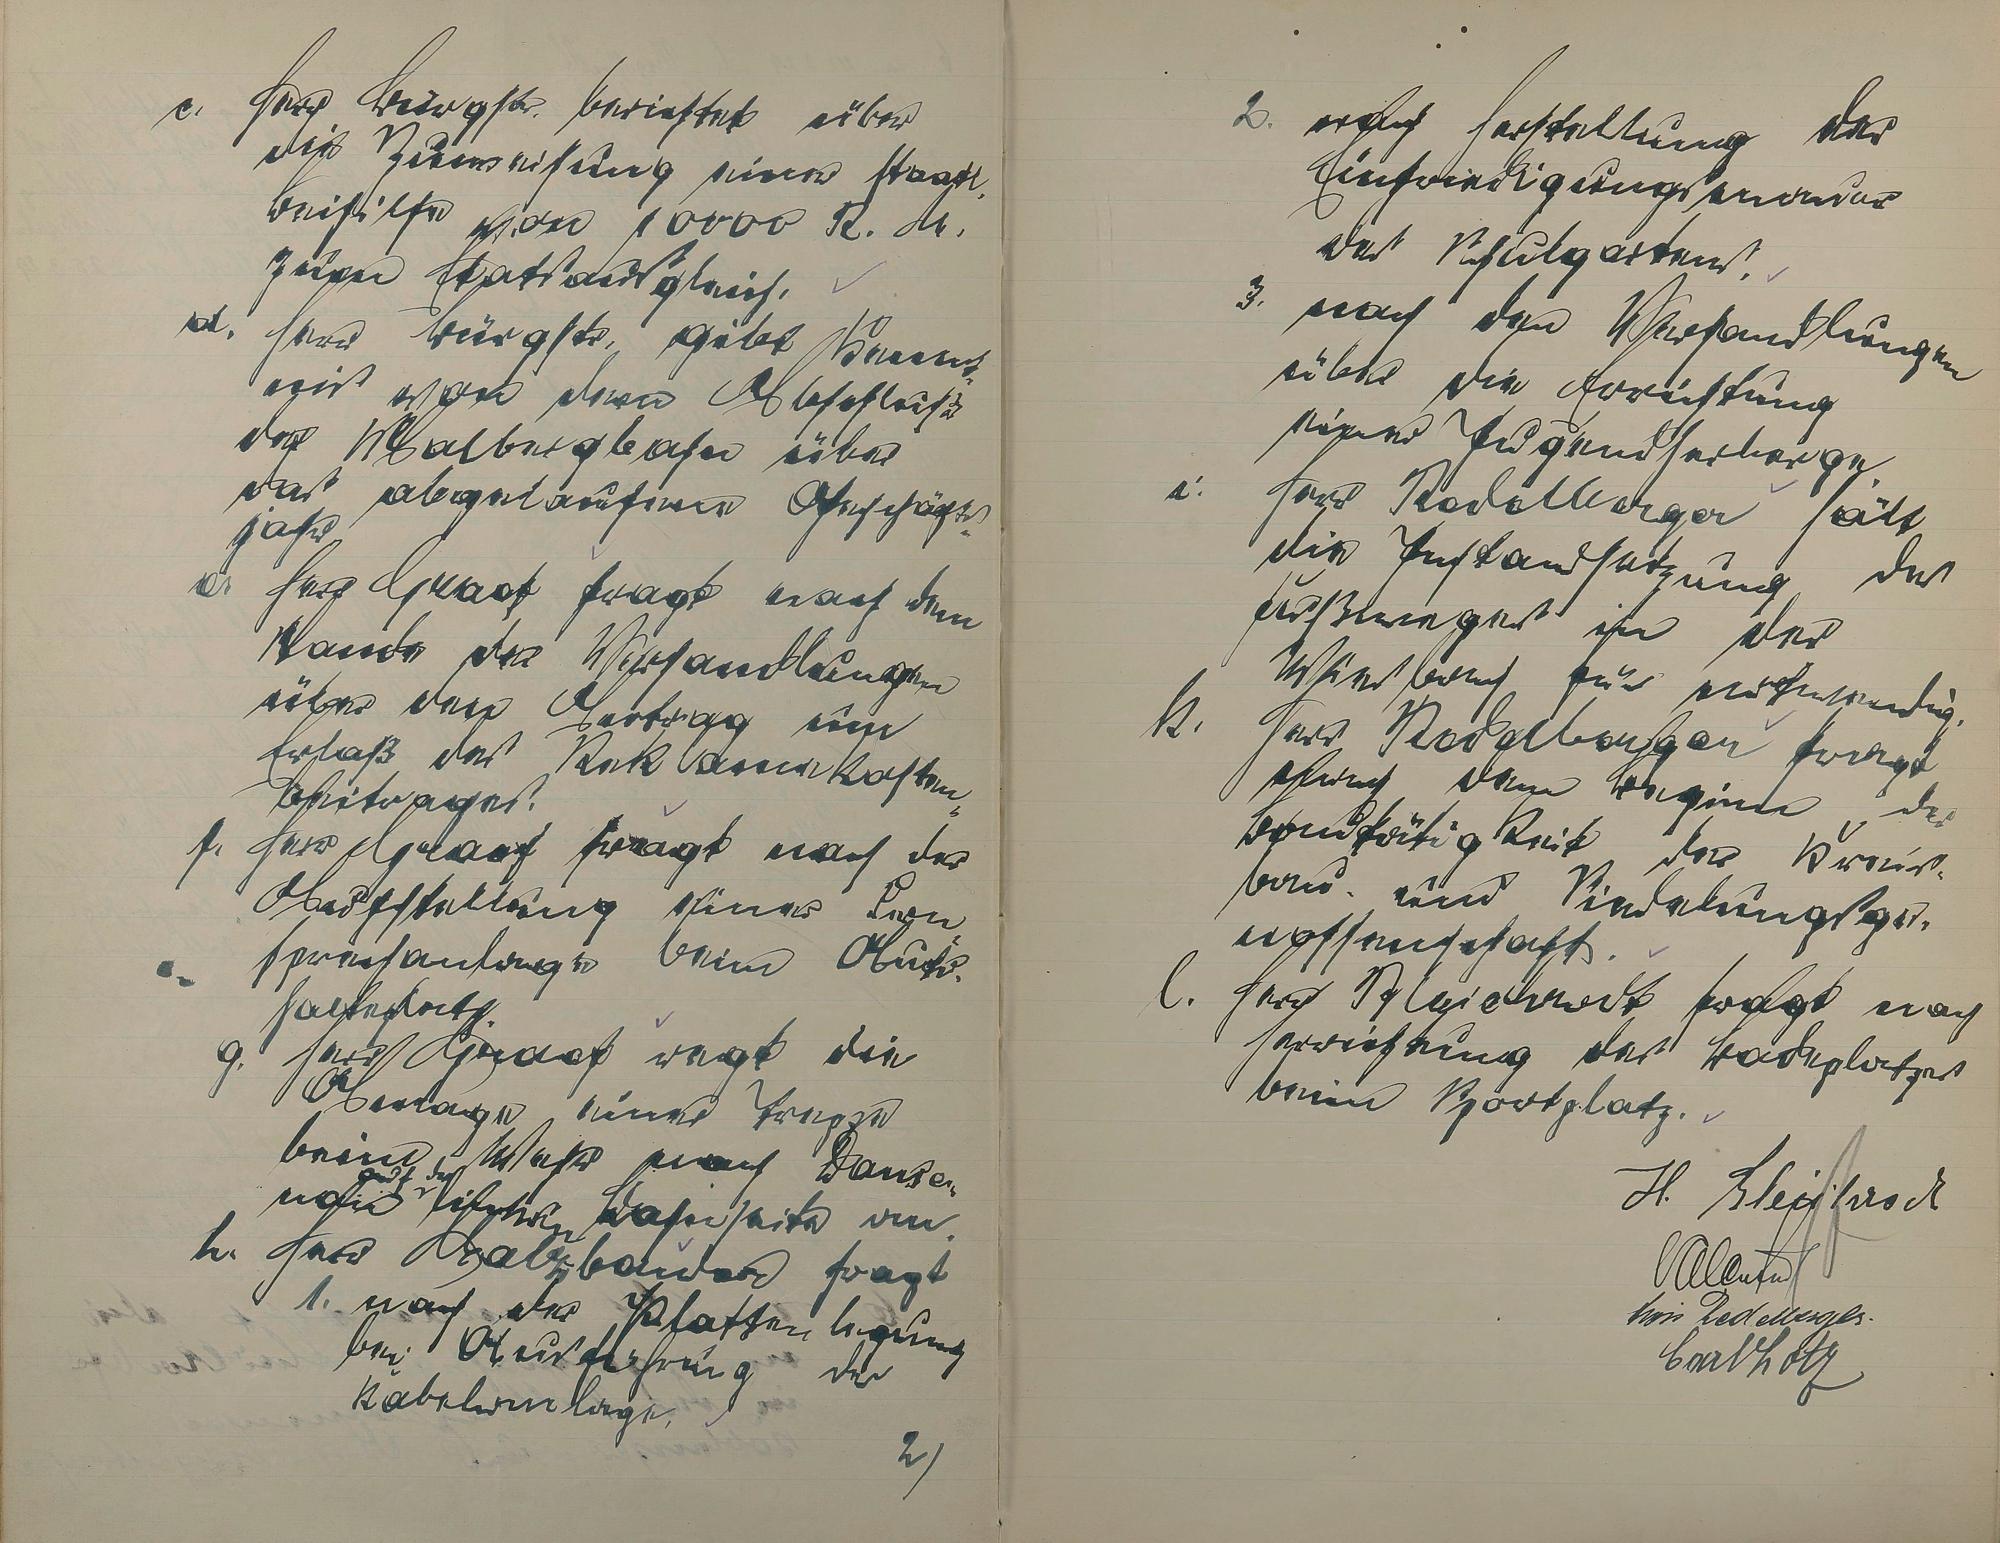 c. Herr Bürgstr. berichtet über
die Zuweisung einer Staats-
beihilfe von 10000 R. M.
zum Etatsausgleich.
d. Herr Bürgstr. gibt Kennt-
nis von dem Abschluß
der Malbergbahn über
das abgelaufene Geschäfts-
jahr
e. Herr Graaf fragt nach dem
Stande der Verhandlungen
über den Antrag um
Erlaß des Reklamekosten-
beitrages.
f. Herr Graaf fragt nach der
Aufstellung einer Fern-
sprechanlage beim Auto-
halteplatz.
g. Herr Graaf regt die
Anlage einer Treppe
beim Wehr nach Dause-
nau auf der Lahnseite an.
h. Herr Balzbauer fragt
1. nach der Plattenlegung
bei Ausführung der
Kabelanlage.
2)
2. nach Herstellung der
Einfriedigungsmauer
des Schulgartens.
3. nach den Verhandlungen
über die Errichtung
einer Jugendherberge.
i. Herr Redelberger hält
die Instandsetzung des
Fußweges in der
Wiesbach für notwendig.
k. Herr Redelberger fragt
nach dem Beginn der
Bautätigkeit der Kreis-
bau- und Siedelungsge-
nossenschaft.
l. Herr Bleichrodt fragt nach
Herrichtung des Badeplatzes
beim Sportplatz.
H. Bleichrodt
Redelberger
Carl Lotz